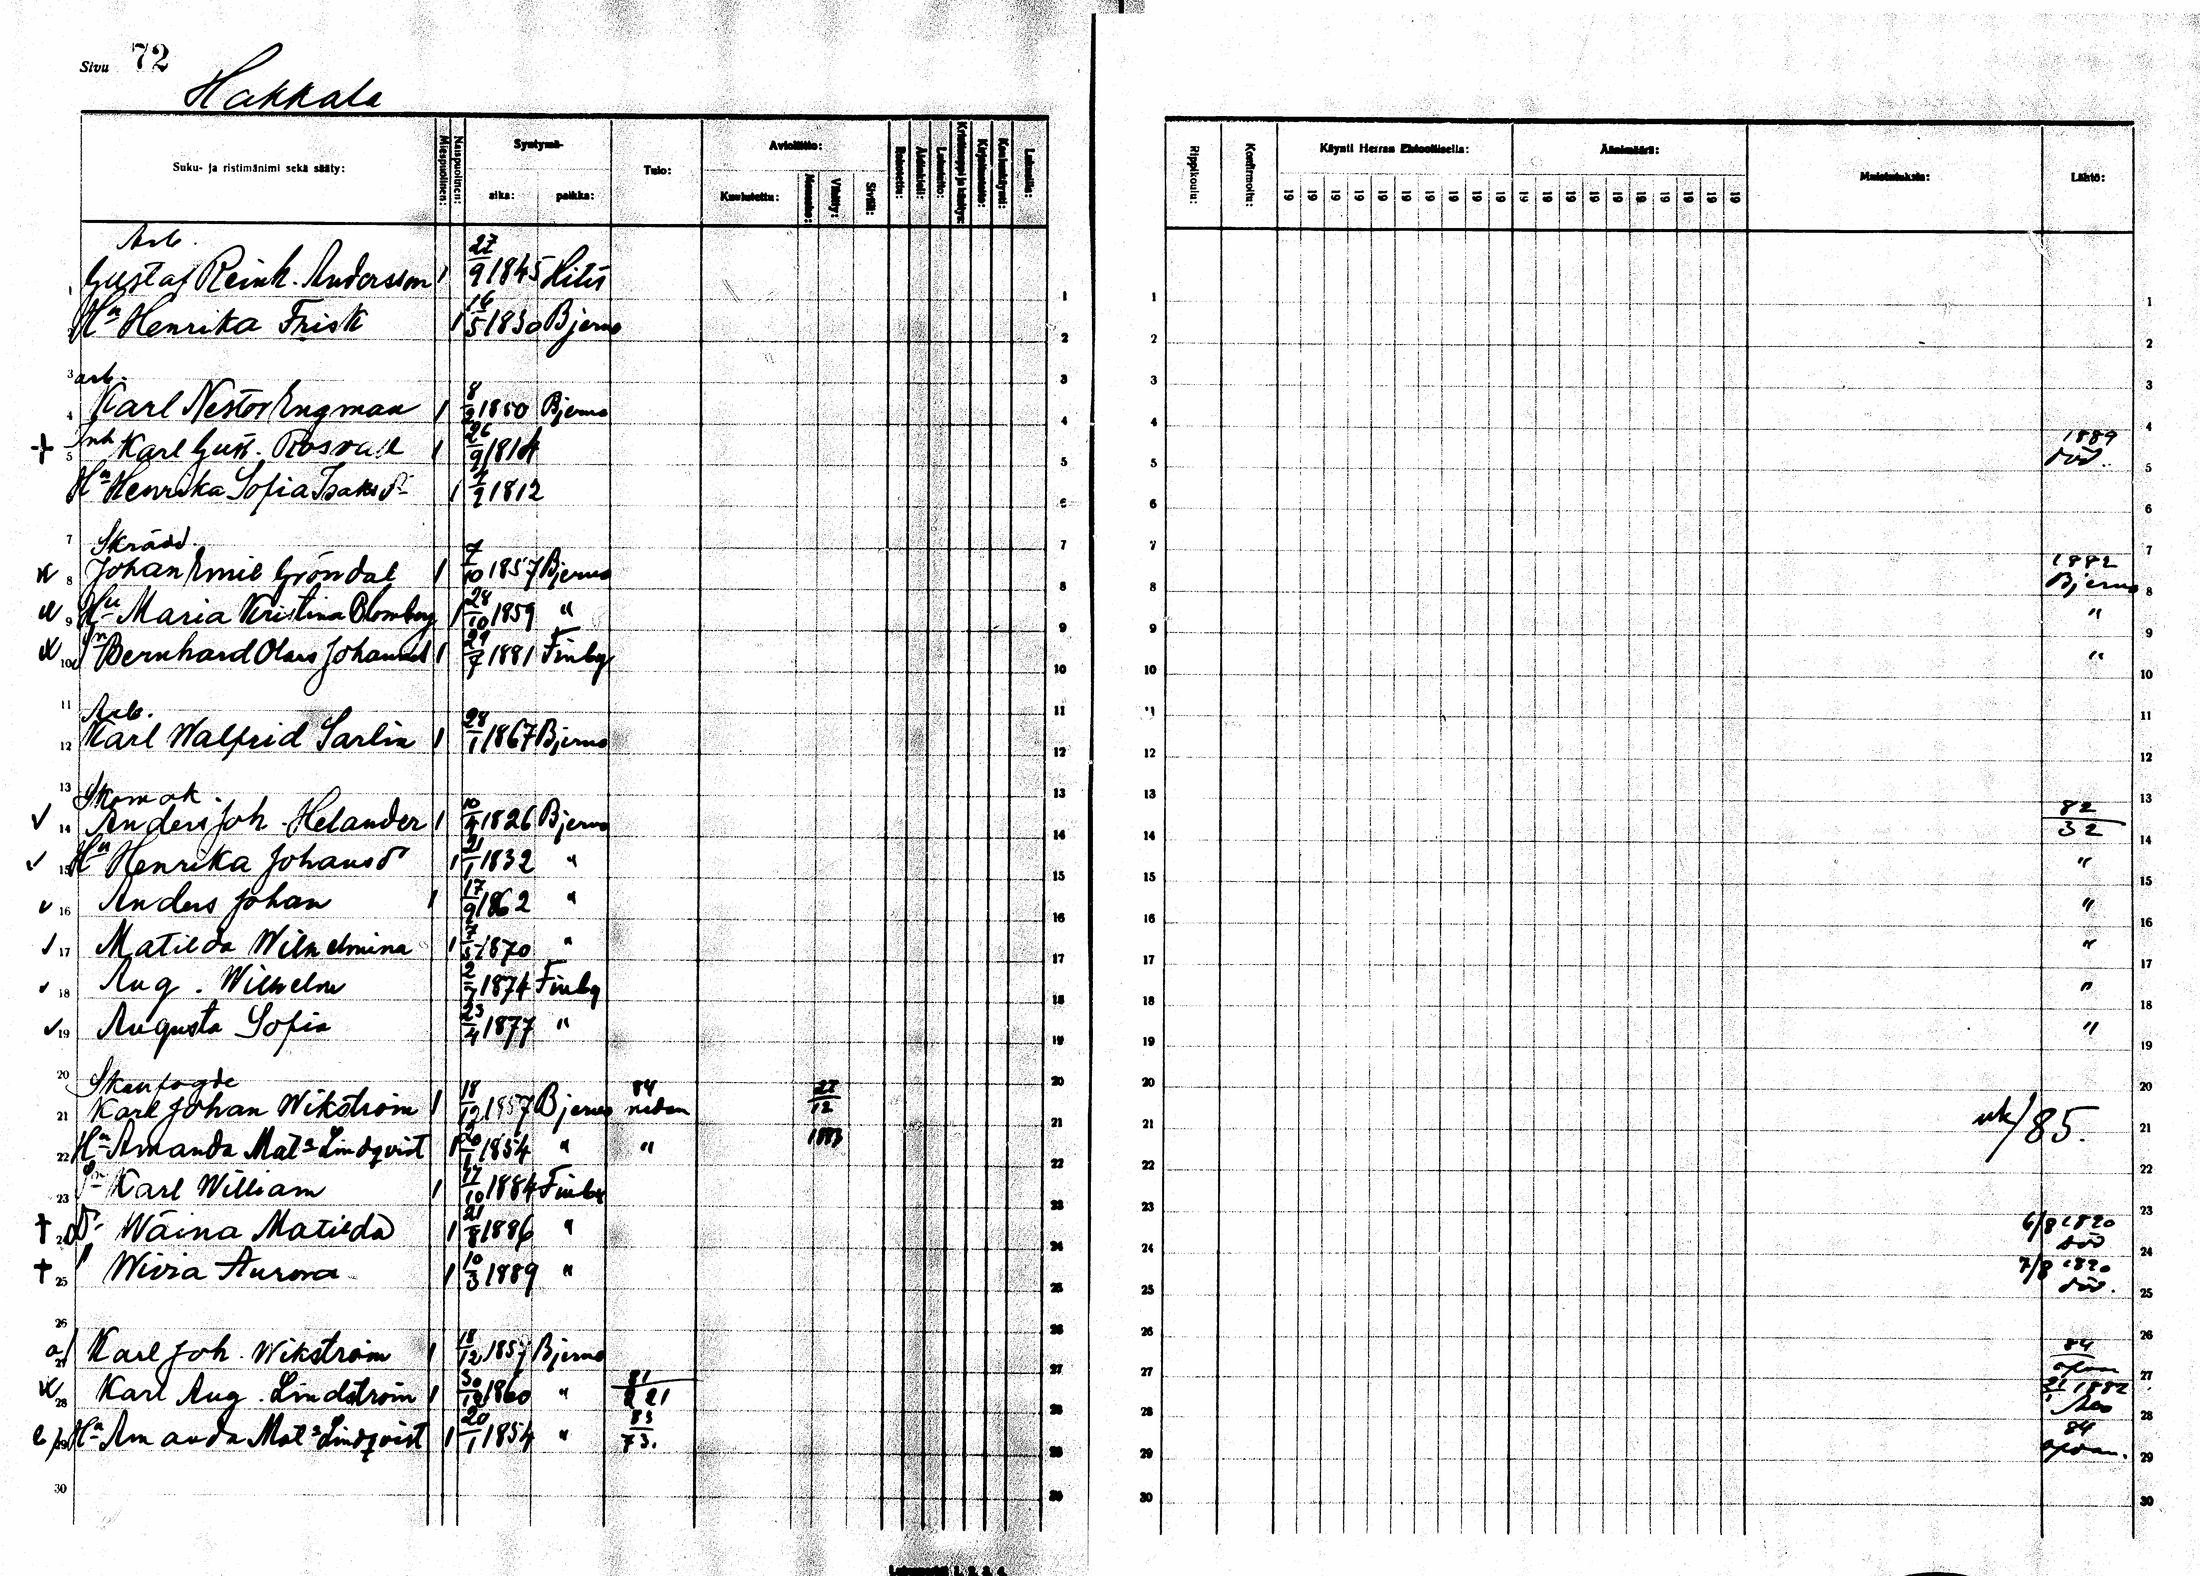 Sivu 72
Hakkala
Suku- ja ristimänimi sekä sääty: Miespuolinen: Naispuolinen: Syntymä- aika: paikka: Tulo: Avioliitto: Kuulutettu: Vihitty: Siviili: Rokotettu: Äidinkieli: Lukutaito: Kristinoppi ja käsitys: Kirjoitustaito: Koulunkäynti: Rippikoulu: Konfirmoitu: Käynti Herran Ehtoollisella: Äänimäärä: Muistutuksia: Lähtö:
19 19 19 19 19 19 19 19 19 19 19 19 19 19 19 19 19 19 19 19
Arb.
1 Gustaf Reinh. Andersson 1 27/9 1845 Hitis 1 1 1
2 Hn Henrika Frisk 1 16/5 1830 Bjerno 2 2 2
3 arb. 3 3 3
4 Karl Nestor Engman 1 8/2 1850 Bjerno 4 4 4
5 Inh Karl Gust. Rosvall 1 26/9 1814 5 5 1889 död. 5
Hn Henrika Sofia Isaksdr 1 1812 6 6 6
7 Skrädd. 7 7 7
8 Johan Emil Gröndal 1 7/10 1857 Bjerno 8 8 1882 Bjerno 8
9 Hu Maria Kristina Blomberg 1 28/10 1859 " 9 9 " 9
10 Sn Bernhard Olars Johannes 1 29/7 1881 Finby 10 10 " 10
11 Arb. 11 11 11
12 Karl Walfrid Sarlin 1 28/1 1867 Bjerno 12 12 12
13 Skomak. 13 13 13
14 Anders Joh. Helander 1 10/4 1826 Bjerno 14 14 82/32 14
15 Hu Henrika Johansdr 1 21/1 1832 " 15 15 " 15
16 Anders Johan 1 17/9 1862 " 16 16 " 16
17 Matilda Wilhelmina 1 1870 " 17 17 " 17
18 Aug. Wilhelm 2/7 1874 Finby 18 18 " 18
19 Augusta Sofia 23/4 1877 " 19 19 " 19
20 Skoufogde 20 20 20
21 Karl Johan Wikström 1 18/12 1857 Bjerno 84 nedan 27/12 21 21 uk/85. 21
22 Hn Amanda Mata Lindqvist 1 20/1 1854 " " 1883 22 22 22
23 Sn Karl William 1 17/10 1884 Finby 23 23 23
24 Dr Wäina Matilda 1 21/8 1886 " 24 24 6/8 1890 död 24
25 " Wivia Aurora 1 10/3 1889 " 25 25 7/8 1890 död. 25
26 26 26 26
a/ 27 Karl Joh. Wikström 1 18/12 1857 Bjerno 27 27 84 ofvan 27
28 Karl Aug. Lindström 1 30/12 1860 " 81/2 21 28 28 21 1882 Åbo 28
b/ 29 Hn Amanda Mata Lindqvist 1 20/1 1854 " 83/73. 29 29 84 ofvan. 29
30 30 30 30